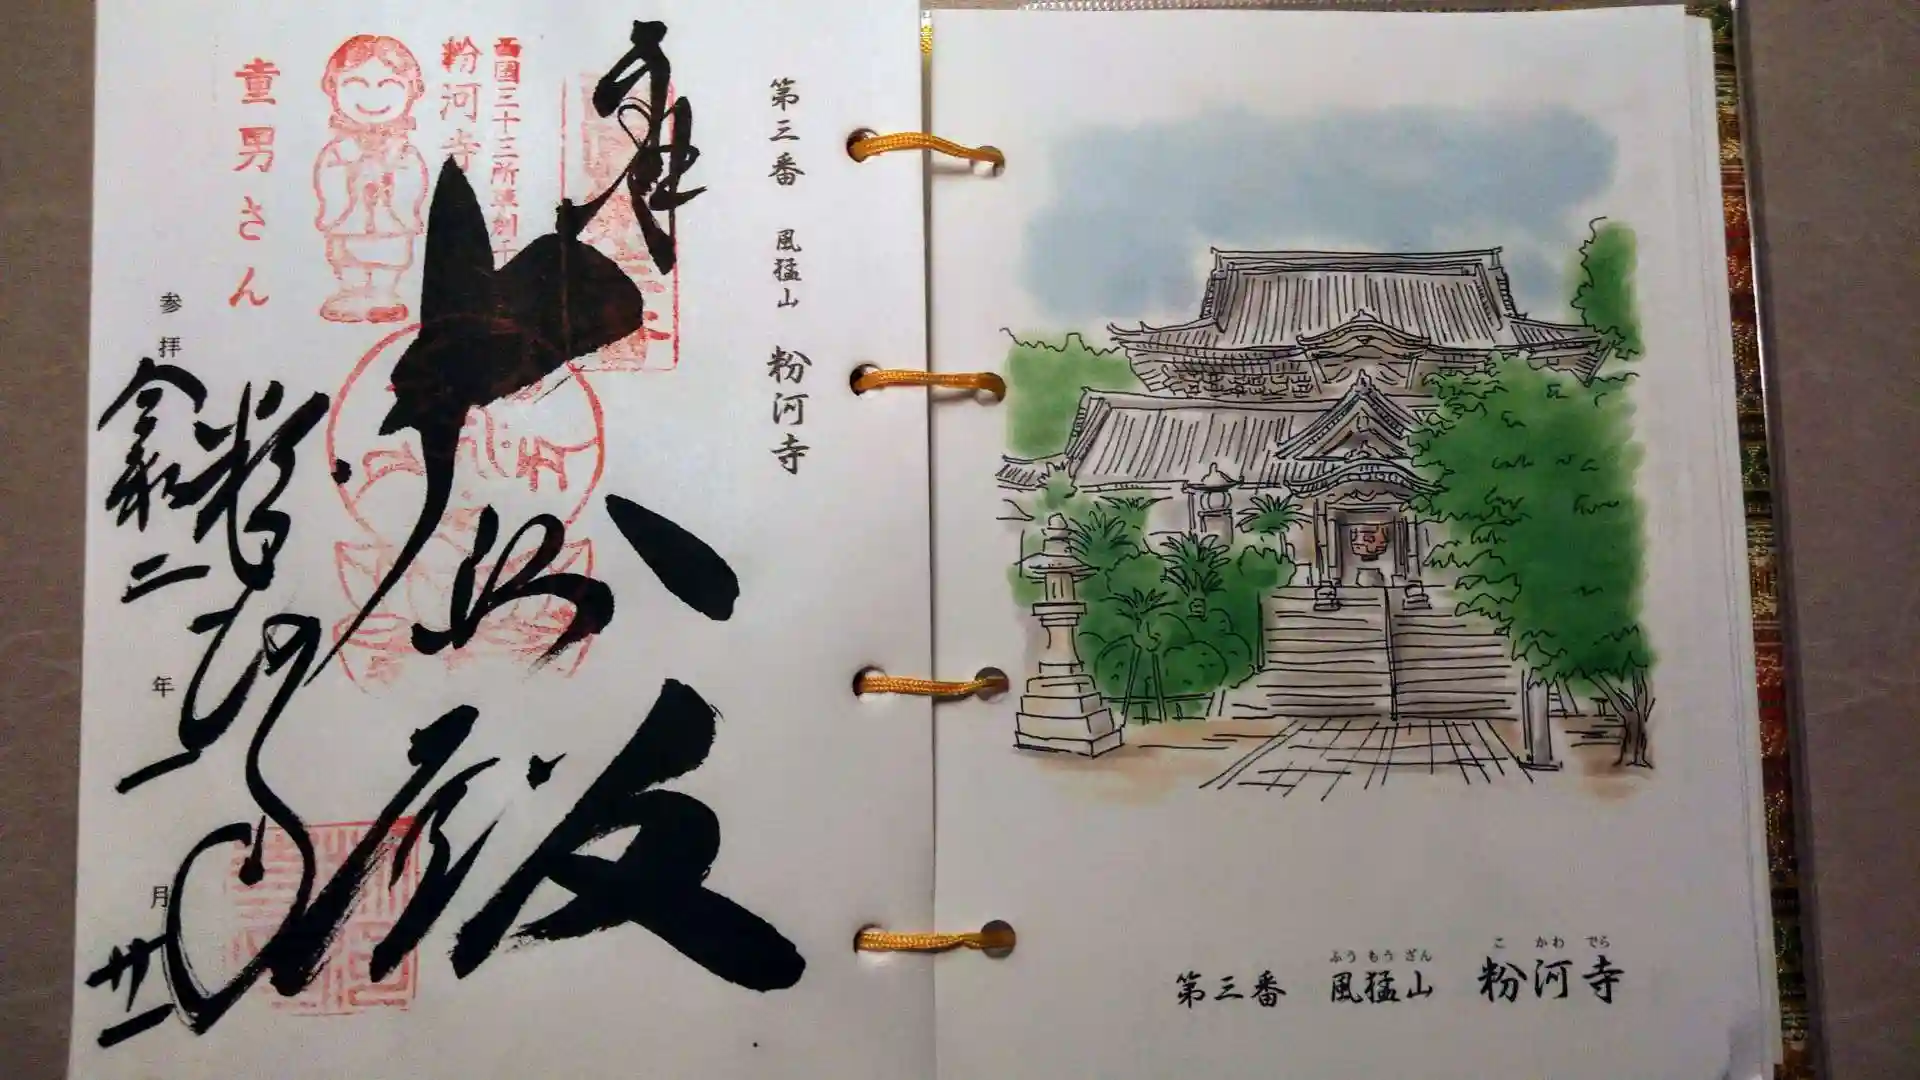 第三番 風猛山 粉河寺
大悲殿
西国三十三所草創千
粉河寺
童男さん
粉河寺
参拝 令和二年一月廿一
ふうもうざん こかわでら
第三番 風猛山 粉河寺